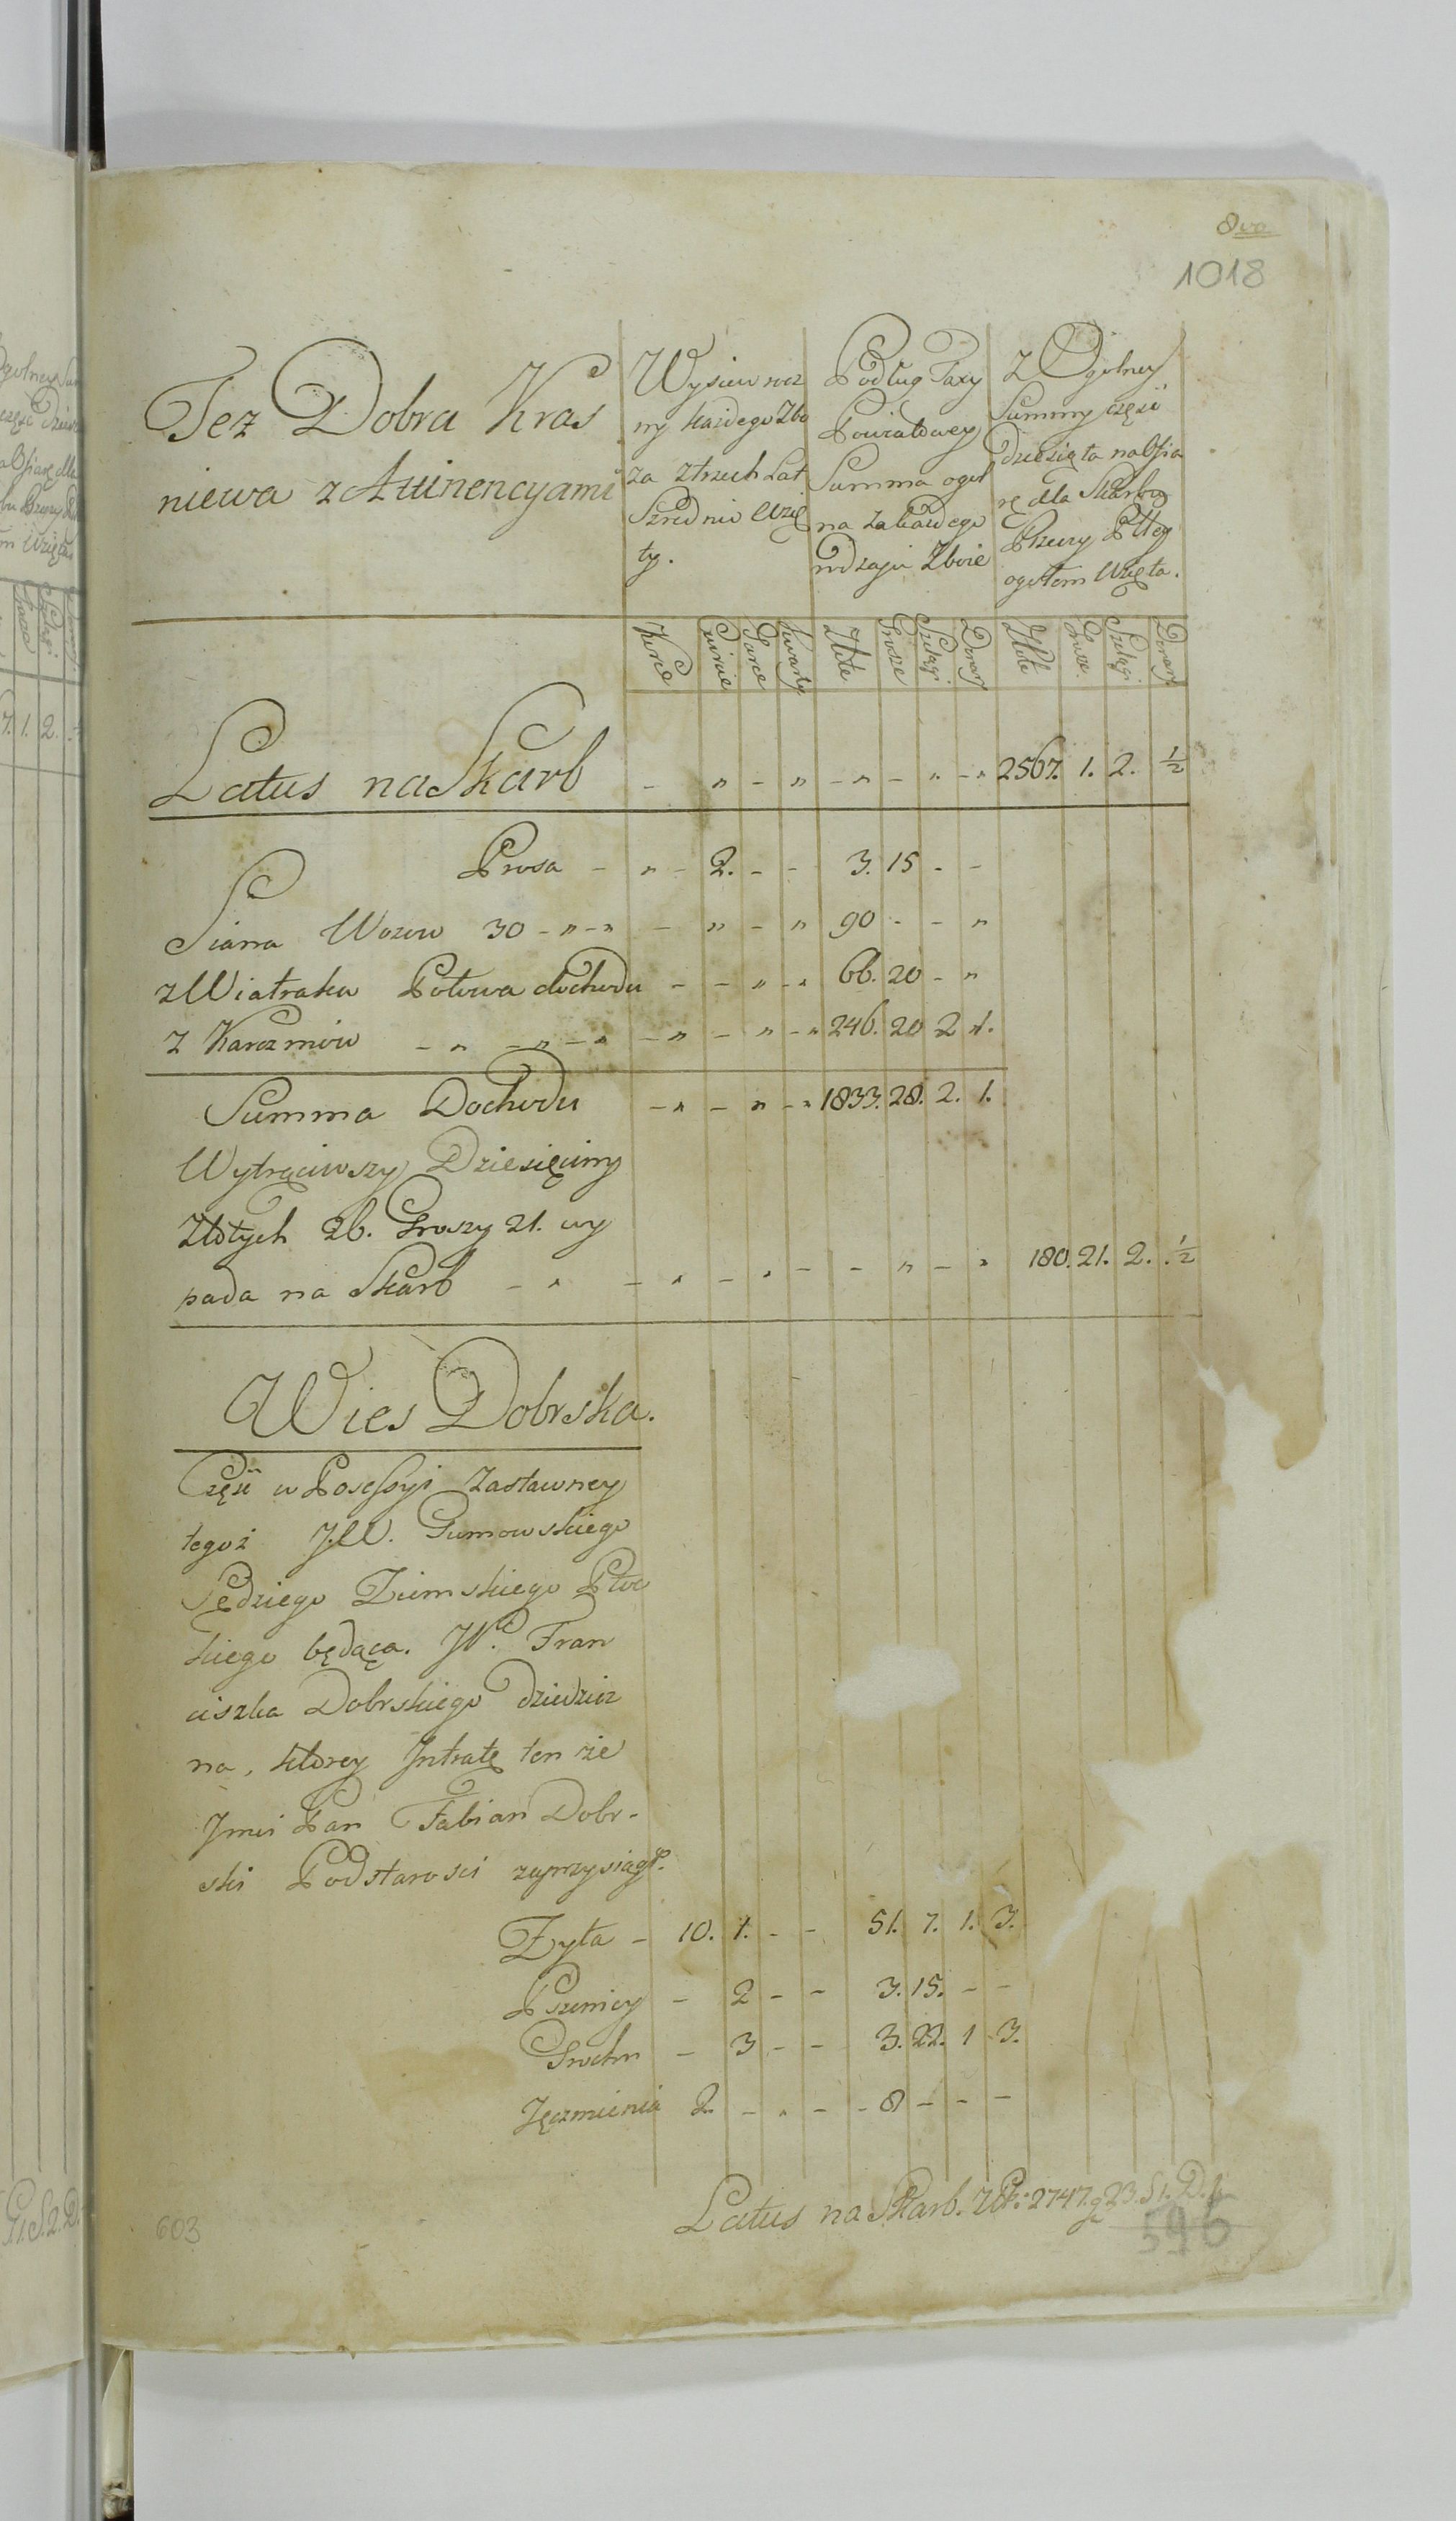 8vo
1018
Też Dobra Kras
niewa z Attinencyami
Wysiew rocz
ny każdego Zbo
za z trzech Lat
Szrednio wzię
ty.
Podług Taxy
Powiatowey
Summa ogol
na za każdego
rodzaju Zboże
Z Ogolney
Summy część
dziesięta na Ofia
rę dla Skarbu
Rzeczy Pltey
ogołem wzięta.
Korce Cwierci Garce Kwarty Złote Grosze Szelągi Denary Złote Grosze Szelągi Denary
Latus na Skarb - „ - „ - „ - „ - „ 2567. 1. 2. ½
Prosa - „ - 2. - - 3. 15 - -
Siana Wozow 30 - „ - „ - „ - „ 90 - - „
z Wiatraku Połowa dochodu - - „ - „ 66. 20 - „
z Karczmow - „ - „ - „ - „ - „ - „ 246. 20 2 1.
Summa Dochodu - „ - „ - „ 1833. 28. 2. 1.
Wytrąciwszy Dziesięciny
Złotych 26. Groszy 21. wy
pada na Skarb - „ - „ - „ - - „ - „ 180. 21. 2. ½
Wies Dobrska.
Część w Possessyi Zastawney
tegoż J.W. Gumowskiego
Sędziego Ziemskiego Płoc
kiego będąca. JP. Fran
ciszka Dobrskiego dziedzicz
na, ktorey Intratę ten że
Jmci Pan Fabian Dobr-
ski Podstarosci zaprzysiągł.
Zyta - 10. 1. - - 51. 7. 1. 3.
Pszenicy - 2 - - 3. 15. - -
Grochu - 3 - - 3. 22. 1 3.
Jęczmienia 2. - „ - - 8 - - -
Latus na Skarb. Złt: 2747. g 23. S 1. D. 1.
603
596